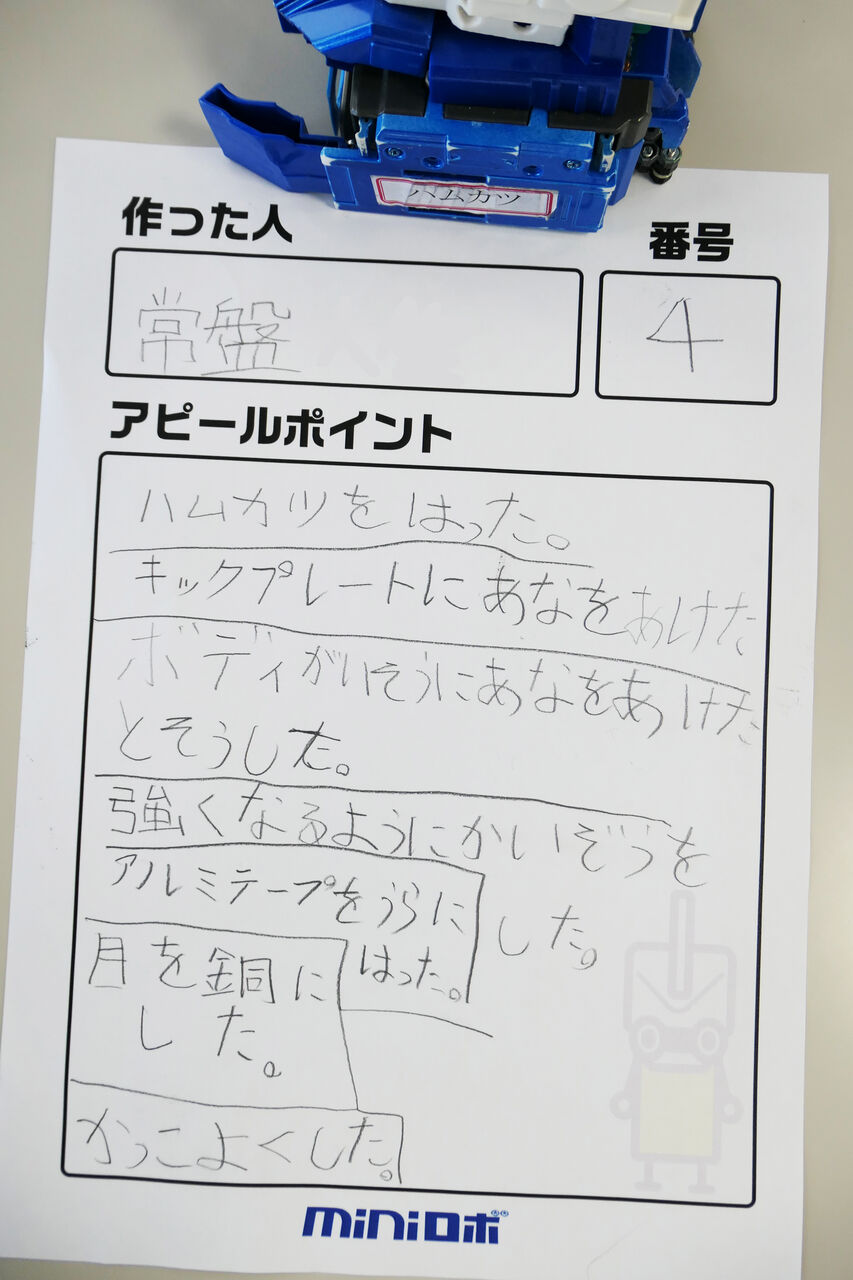 ハムカツ
作った人
番号
常盤
4
アピールポイント
ハムカツをはった。
キックプレートにあなをあけた
ボディがいそうにあなをあけた
とそうした。
強くなるようにかいぞうを
した。
アルミテープをうらに
はった。
月を銅に
した。
かっこよくした。
miniロボ